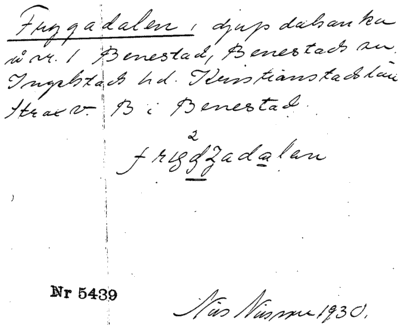 Fryggadalen, djup dalsänka
å nr. 1 Benestad, Benestads sn.
Ingelstads hd. Kristianstads län
Strax v. B i Benestad.
2
friggadalan
Nr 5439
Nils Nilsson 1930.